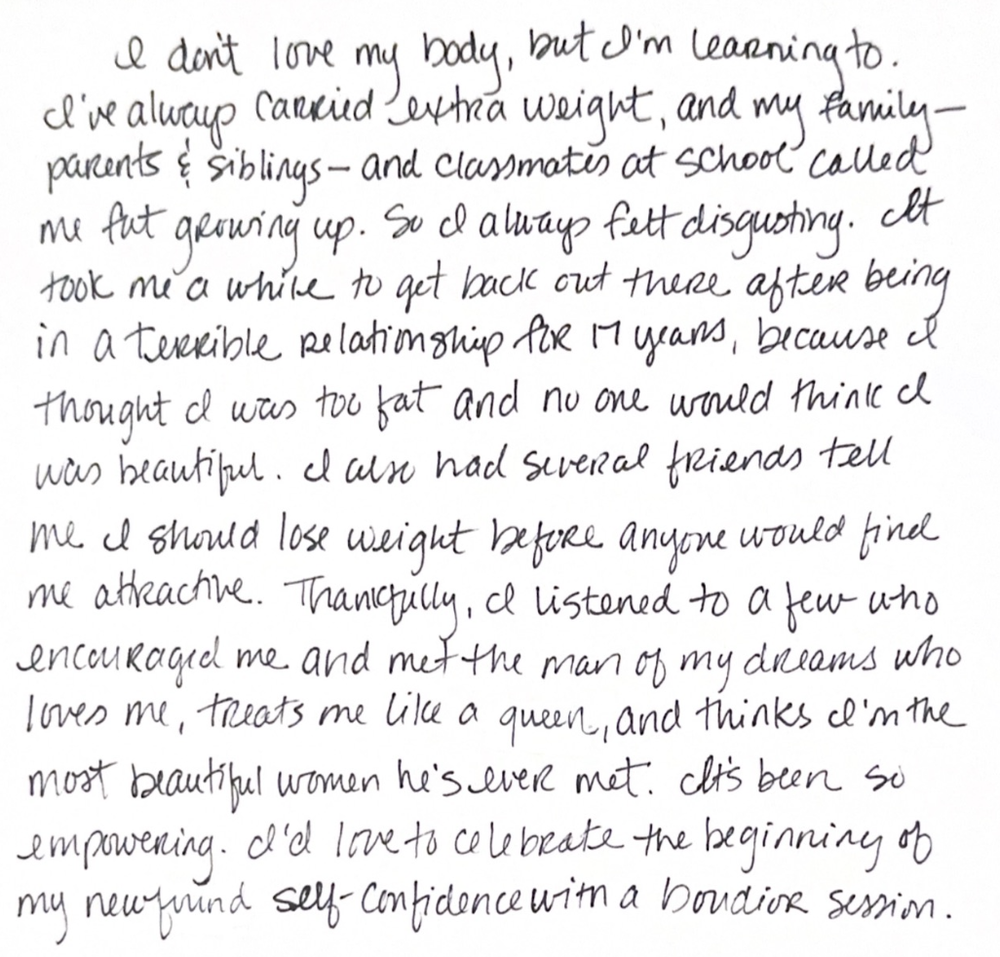 I don't love my body, but I'm learning to.
I've always carried extra weight, and my family—
parents & siblings — and classmates at school called
me fat growing up. So I always felt disgusting. It
took me a while to get back out there after being
in a terrible relationship for 17 years, because I
thought I was too fat and no one would think I
was beautiful. I also had several friends tell
me I should lose weight before anyone would find
me attractive. Thankfully, I listened to a few who
encouraged me and met the man of my dreams who
loves me, treats me like a queen, and thinks I'm the
most beautiful women he's ever met. It's been so
empowering. I'd love to celebrate the beginning of
my newfound self-confidence with a boudior session.